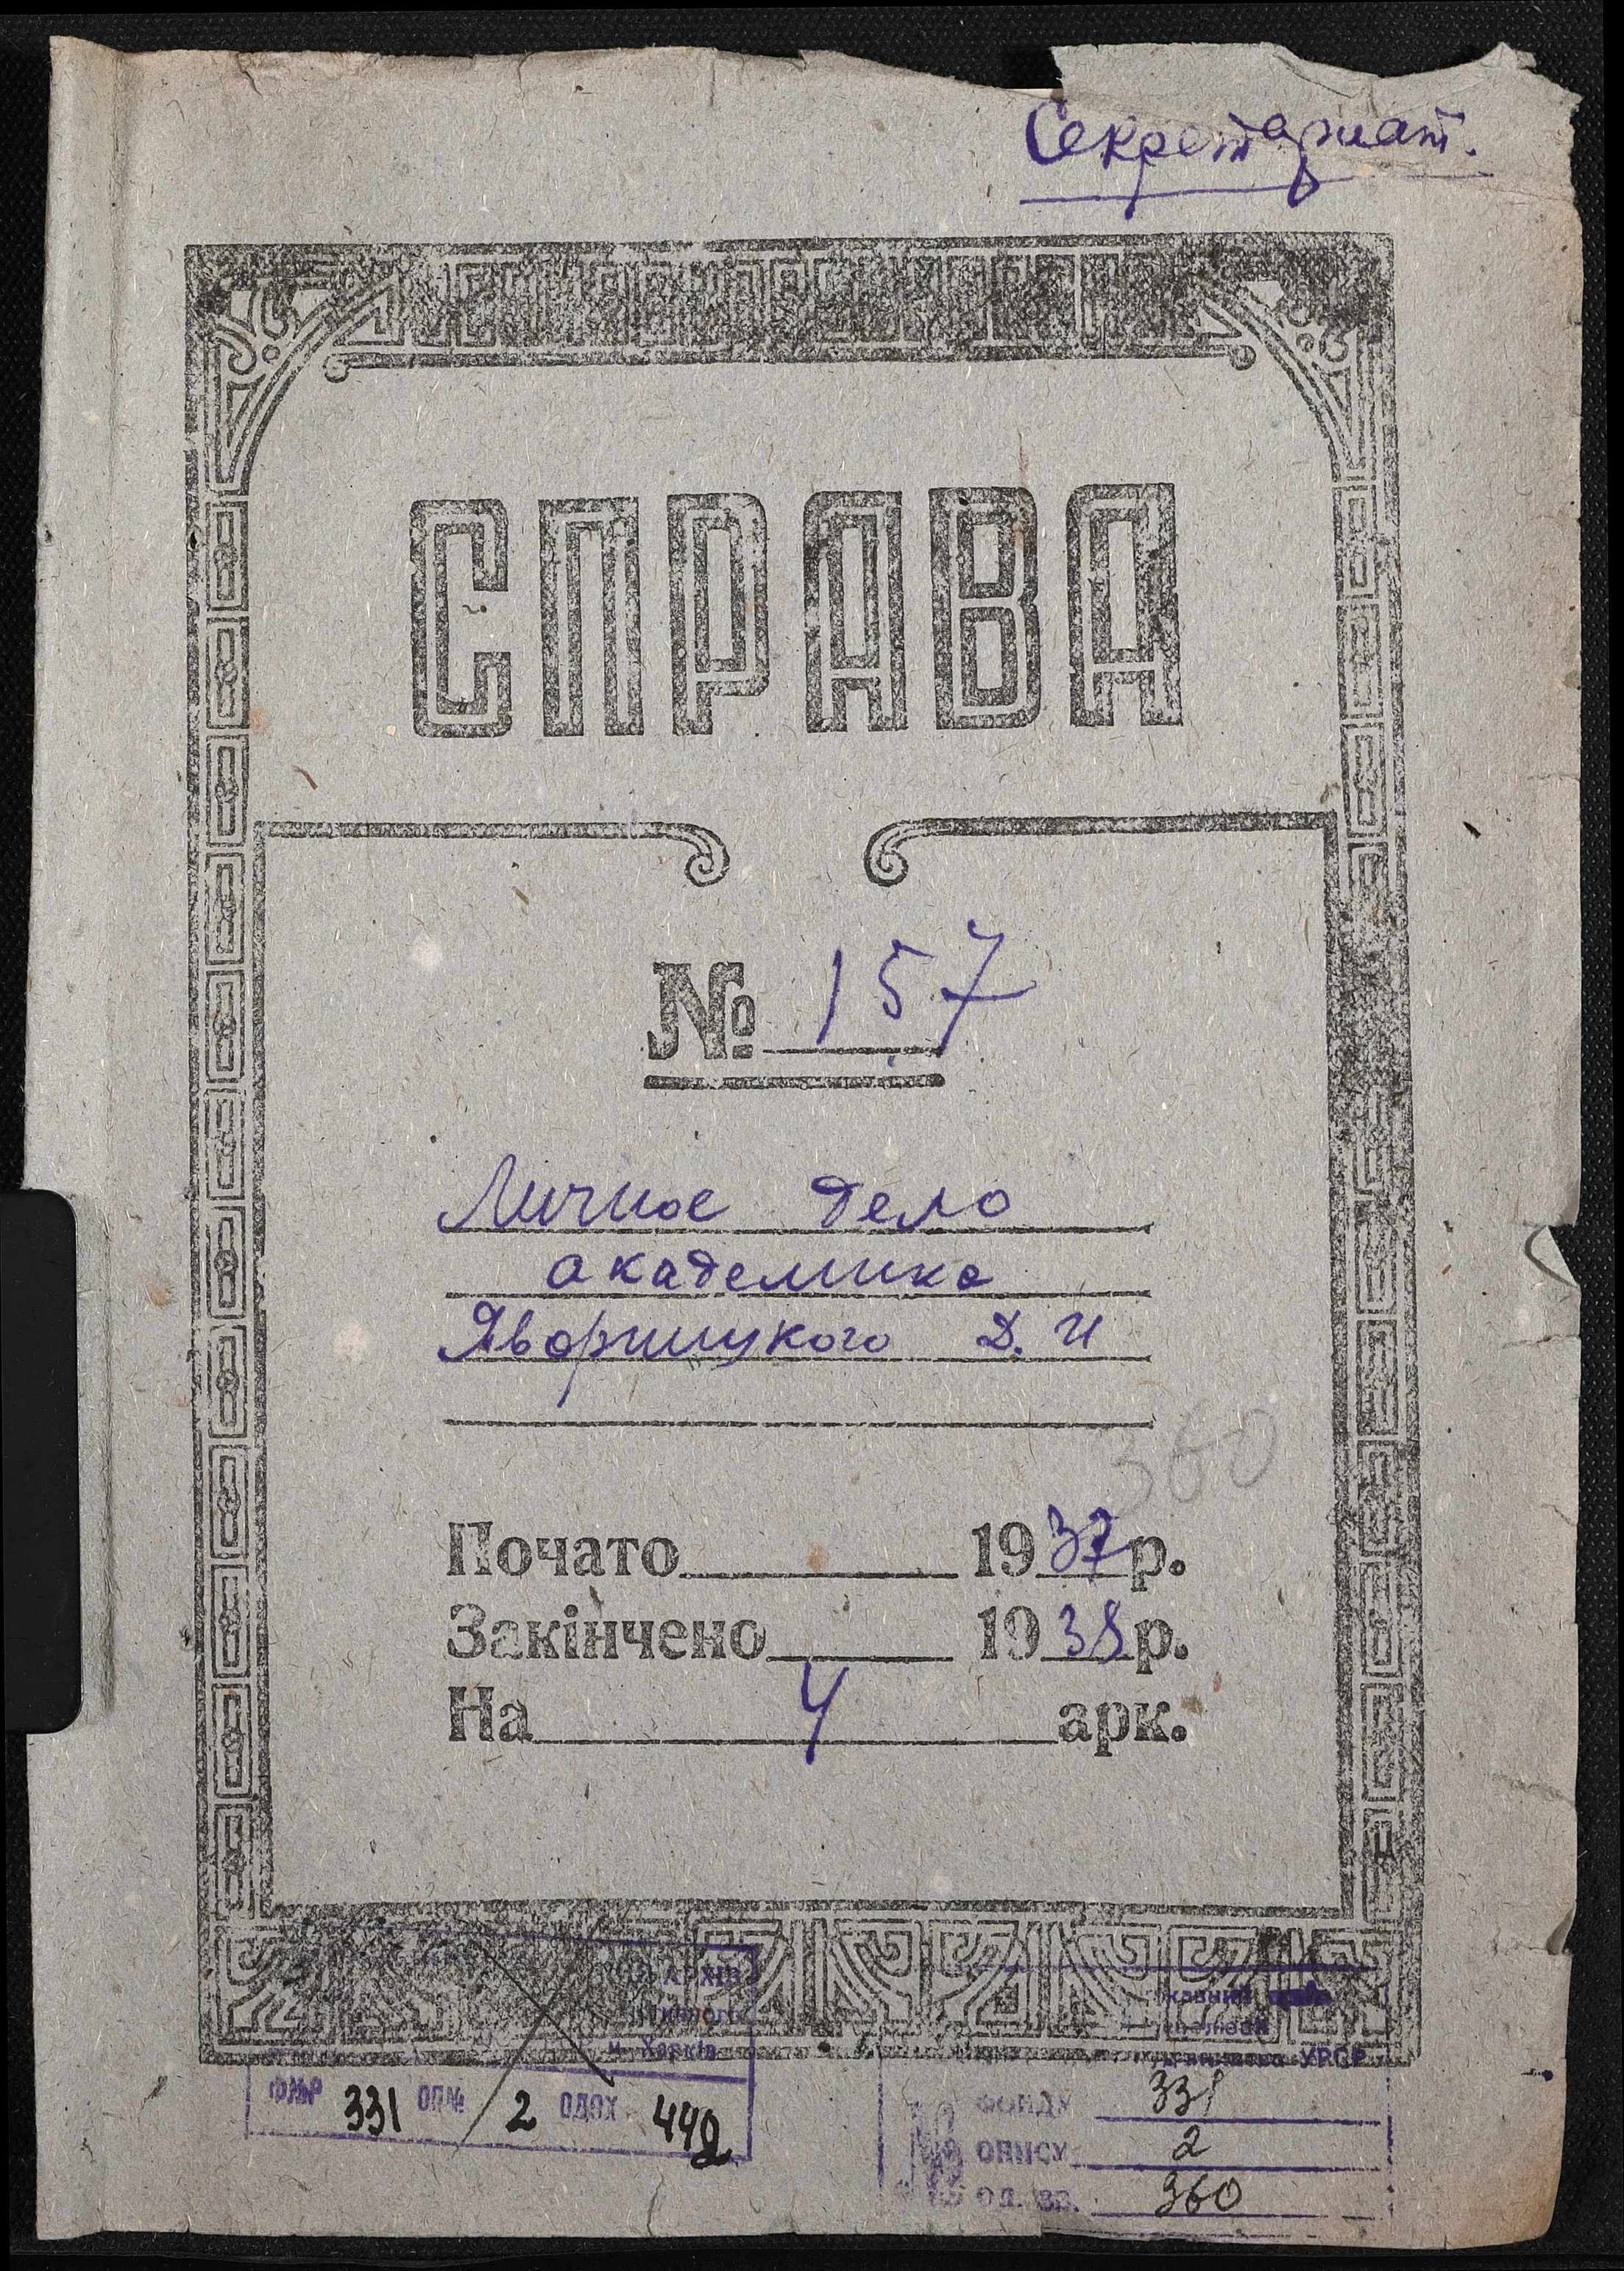 Секретариат.
СПРАВА
№ 157
Личное дело
академика
Яворницкого Д. И
360
Почато 1937 р.
Закінчено 1938 р.
На 4 арк.
АРХІВ
м. Харків
ФМР 331 ОП№ 2 ОДОХ 442
УРСР
ФОНДУ 331
ОПИСУ 2
ОД. ЗБ. 360